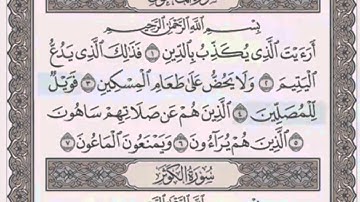 بِسْمِ اللَّهِ الرَّحْمَٰنِ الرَّحِيمِ
أَرَءَيْتَ الَّذِي يُكَذِّبُ بِالدِّينِ ١ فَذَٰلِكَ الَّذِي يَدُعُّ
الْيَتِيمَ ٢ وَلَا يَحُضُّ عَلَىٰ طَعَامِ الْمِسْكِينِ ٣ فَوَيْلٌ
لِلْمُصَلِّينَ ٤ الَّذِينَ هُمْ عَنْ صَلَاتِهِمْ سَاهُونَ
٥ الَّذِينَ هُمْ يُرَآءُونَ ٦ وَيَمْنَعُونَ الْمَاعُونَ ٧
سُورَةُ الْكَوْثَرِ